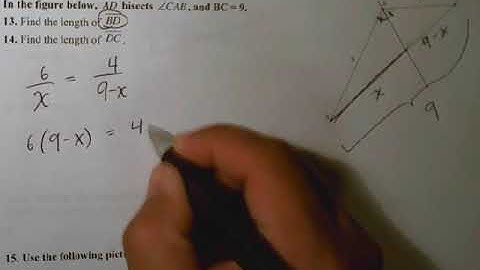 In the figure below, AD bisects ∠CAB, and BC = 9.
13. Find the length of BD
14. Find the length of DC.
6/x = 4/9-x
6(9-x) = 4
9-x
x
9
15. Use the following pict